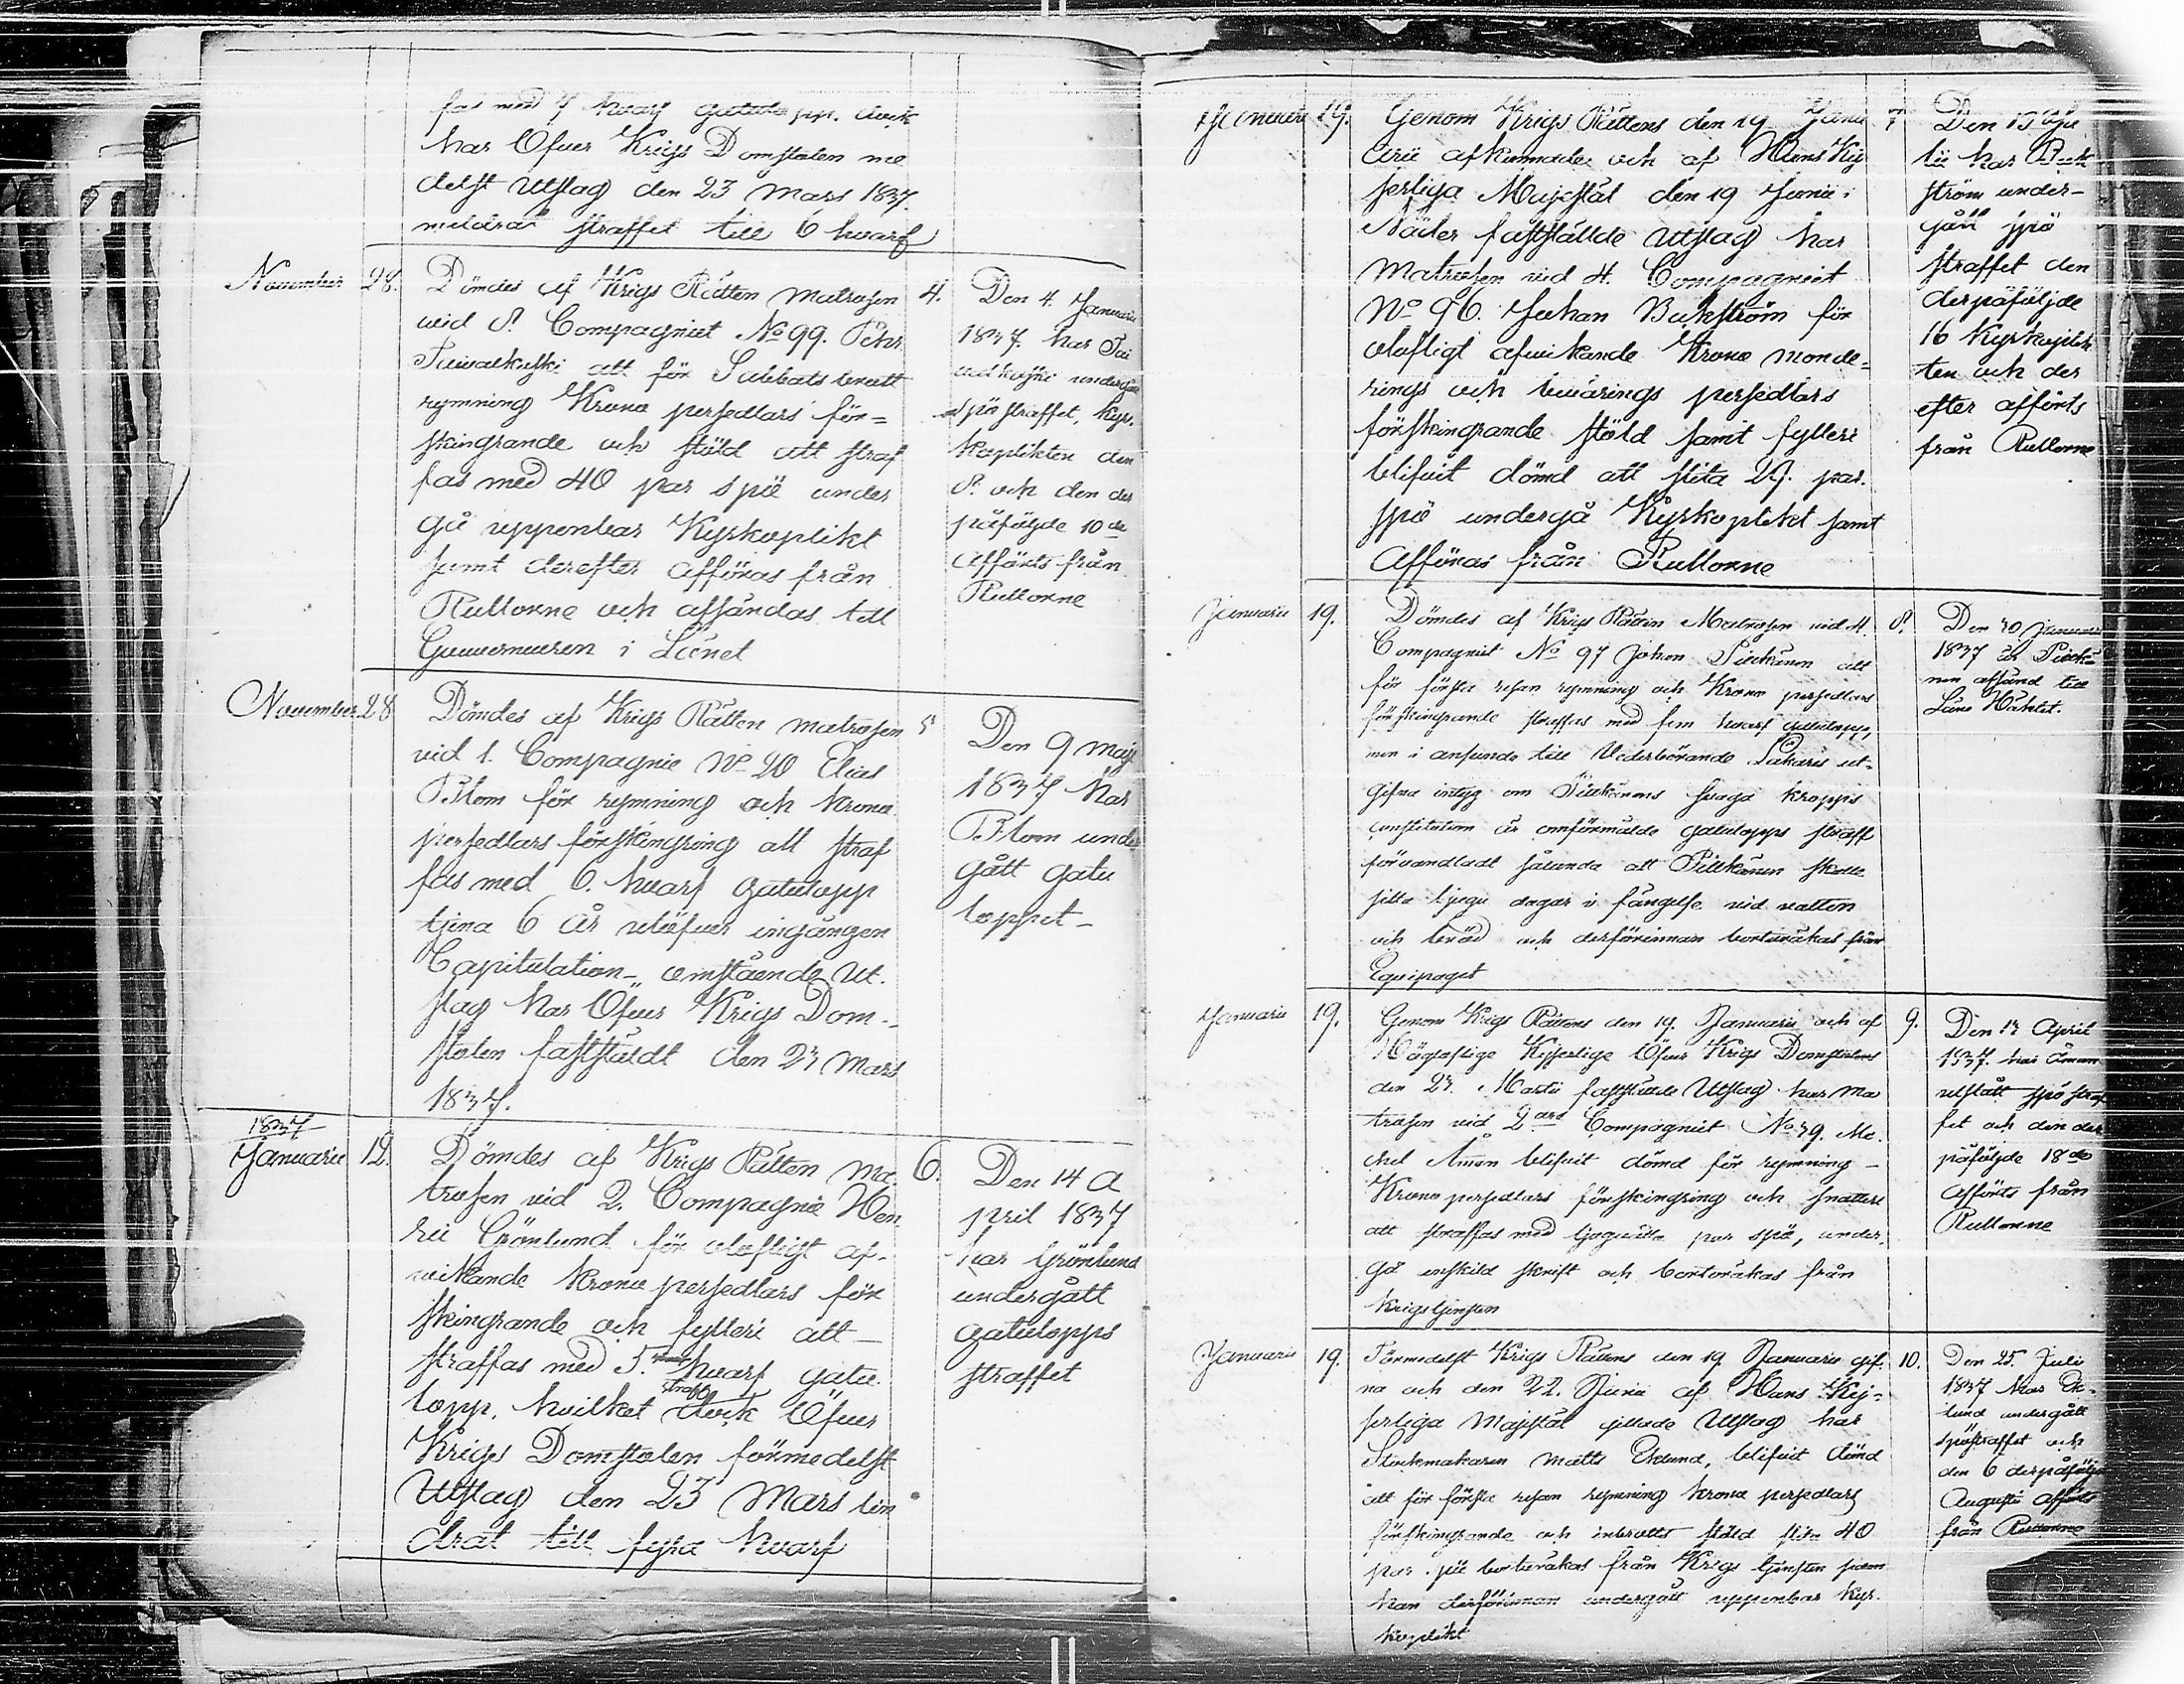 fas med 7 hvarf gatulopp. dock
har Öfver Krigs Domstolen me
delst Utslag den 23 Mars 1837.
mildrat straffet till 6 hvarf
November 28.
Dömdes af Krigs Rätten Matrosen
vid 8. Compagniet No 99. Petter
Taivalkoski att för Sabbatsbrott
rymning Krono persedlars för=
skingrande och stöld att straf
fas med 40 par spö under
gå uppenbar Kyrkoplikt
samt derefter afföras från
Rullorne och afsändas till
Guverneuren i Länet
4.
Den 4. Januarii
1837. har Tai
valkoski undergått
spöstraffet, kyr.
koplikten den
8. och den der
påföljde 10de
Afförts från
Rullorne
November 28
Dömdes af Krigs Rätten matrosen
vid 1. Compagnie No 20 Elias
Blom för rymning och krono
persedlars förskingring att straf
fas med 6. hvarf gatulopp
tjena 6 år utöfver ingången
Capitulation_ omstående Ut.
slag har Öfver Krigs Dom_
stolen fastställdt den 23 Mars
1837.
5
Den 9 Maji
1837 har
Blom under
gått gatu
loppet_
1837
Januarii 12.
Dömdes af Krigs Rätten Ma
trosen vid 2. Compagnie Hen
ric Grönlund för olofligt af.
vikande krono persedlars för
skingrande och fylleri att_
straffas med 5. hvarf gatu.
lopp, hvilket straff dock Öfver
Krigs Domstolen förmedelst
Utslag den 23 Mars lin
drat till fyra hvarf
6.
Den 14 A
pril 1837
har Grönlund
undergått
gatulopps
straffet
Januarii 19.
Genom Krigs Rättens den 19 Janu
arii afkunnade och af Hans Kej
serliga Majestät den 19 Junii i
Nåder fastställde Utslag har
Matrosen vid 4. Compagniet
No 96. Johan Bukström för
olofligt afvikande Krono monde=
rings och bevärings persedlars
förskingrande stöld samt fylleri
blifvit dömd att slita 29. par.
spö undergå Kyrkoplikt samt
Afföras från Rullorne
7
Den 13 Ju
lii har Buk
ström under-
gått spö
straffet den
derpåföljde
16 Kyrkoplik
ten och der
efter afförts
från Rullorne
Januarii 19.
Dömdes af Krigs Rätten Matrosen vid 4.
Compagniet No 97 Johan Pitkänen att
för första resan rymning och Krono persedlars
förskingrande straffas med fem hvarf gatulopp,
men i anseende till Vederbörande Läkares ut-
gifna intyg om Pitkänens svaga kropps
constitution är omförmälde gatulopps straff
förvandladt sålunda att Pitkänen skulle
sitta tjugu dagar i fängelse vid vatten
och bröd och derförinnan bortvräkas från
Equipaget
8.
Den 30 Januarii
1837 är Pitkä
nen afsänd till
Läns Häktet.
Januarii 19.
Genom Krigs Rättens den 19. Januarii och af
Höglofliga Kejserliga Öfver Krigs Domstolens
den 23. Martii fastställde Utslag har Ma
trosen vid 2dra Compagniet No 39. Mi.
chel Åman blifvit dömd för rymning_
Krono persedlars förskingring och snatteri
att straffas med tjugutvå par spö, under.
gå enskild skrift och bortvräkas från
Krigstjensten
9.
Den 13 April
1837. har Åman
utstått spö straf
fet och den der
påföljde 18de
Afförts från
Rullorne
Januarii 19.
Förmedelst Krigs Rättens den 19 Januarii gif
na och den 22. Junii af Hans Kej=
serliga Majestät gillade Utslag har
Stockmakaren Matts Eklund, blifvit dömd
att för första resan rymning krono persedlars
förskingrande och inbrotts stöld slita 40
par spö bortvräkas från Krigs tjensten sedan
han derförinnan undergått uppenbar kyr.
koplikt
10.
Den 25. Julii
1837 har Ek-
lund undergått
spöstraffet och
den 6 derpåföljde
Augusti afförts
från Rullorne